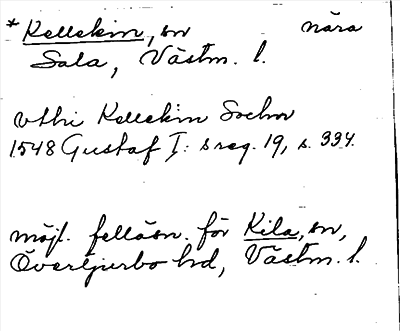 *Kellekim, sn nära
Sala, Västm. l.
vthi Kellekim Sochn
1548 Gustaf I: s reg. 19, s. 334.
möjl. felläsn. för Kila, sn,
Övertjurbo hd, Västm. l.